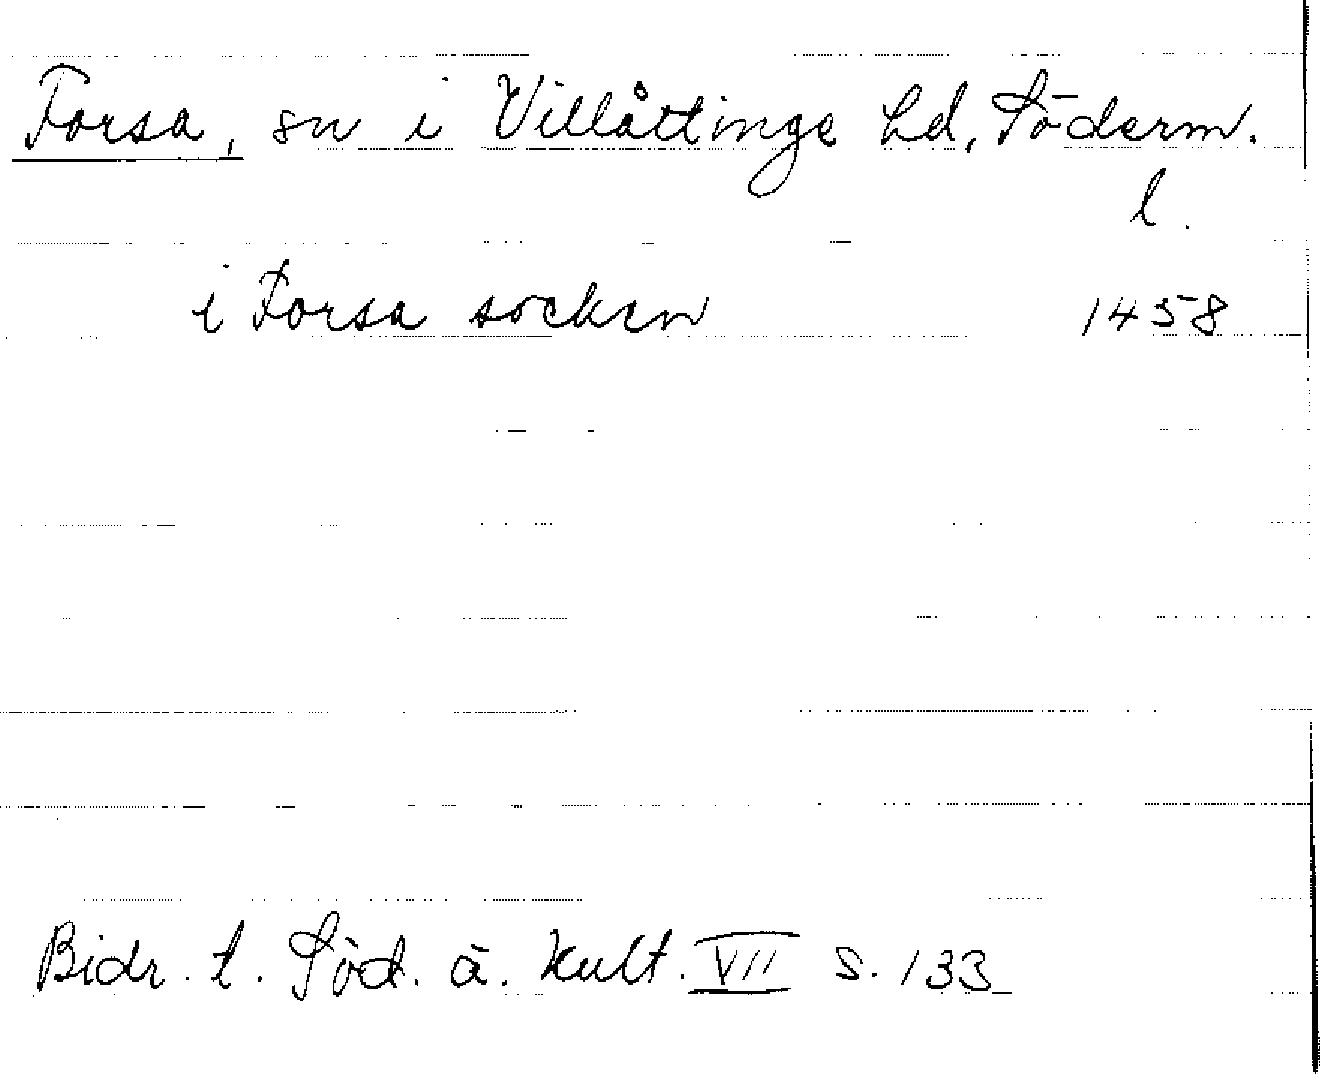 Forsa, sn i Villåttinge hd, Söderm.
l.
i Forsa socken 1458
Bidr. t. Söd. ä. kult. VII s. 133